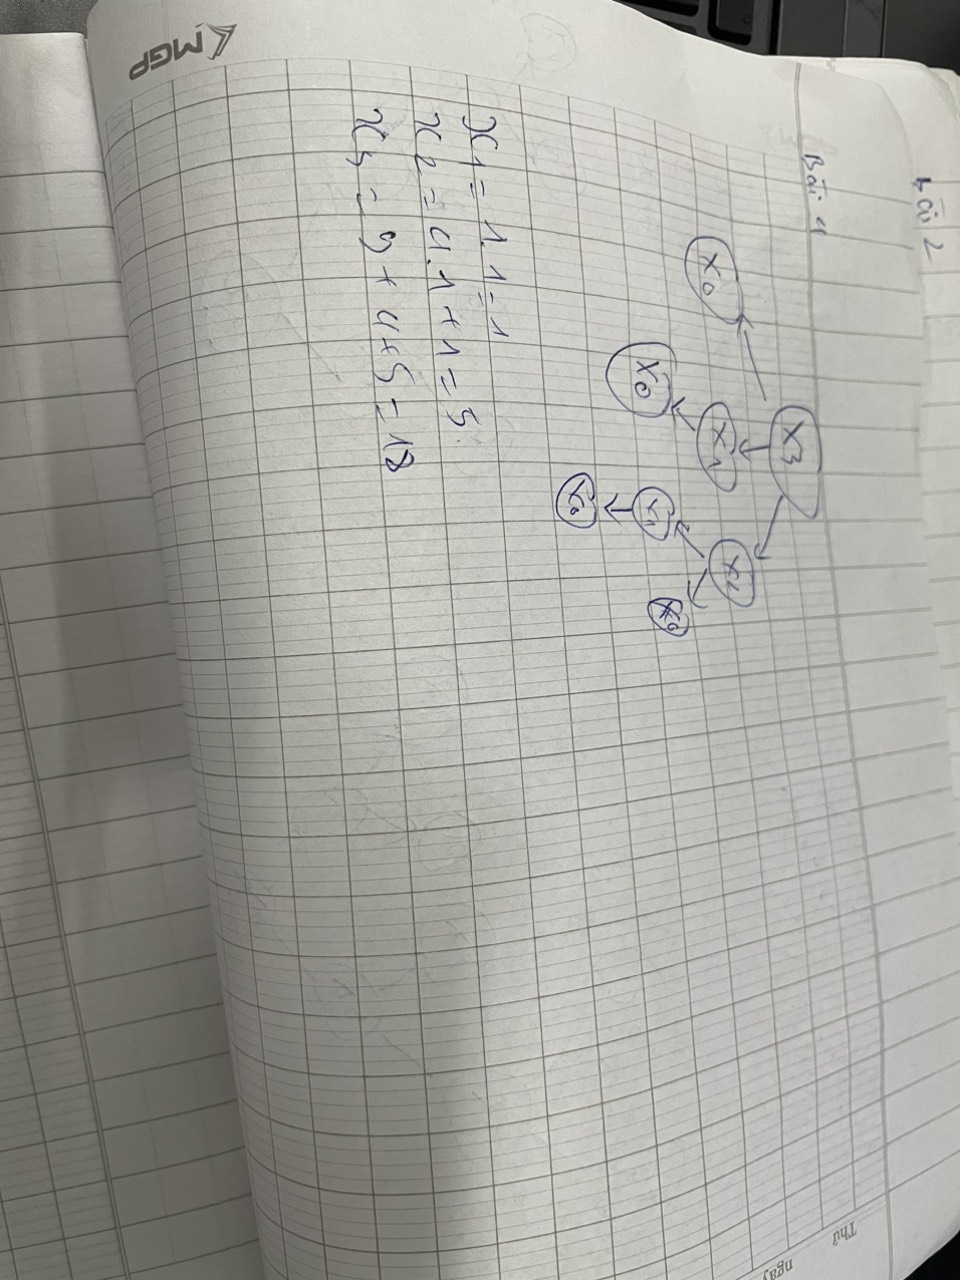 Bài 2
Bài 1
X3
X0 X1 X2
X0 X1 X0
X0
x1 = 1.1 = 1
x2 = 4.1 + 1 = 5
x3 = 9 + 4 + 5 = 18
MGP
Thứ
ngày